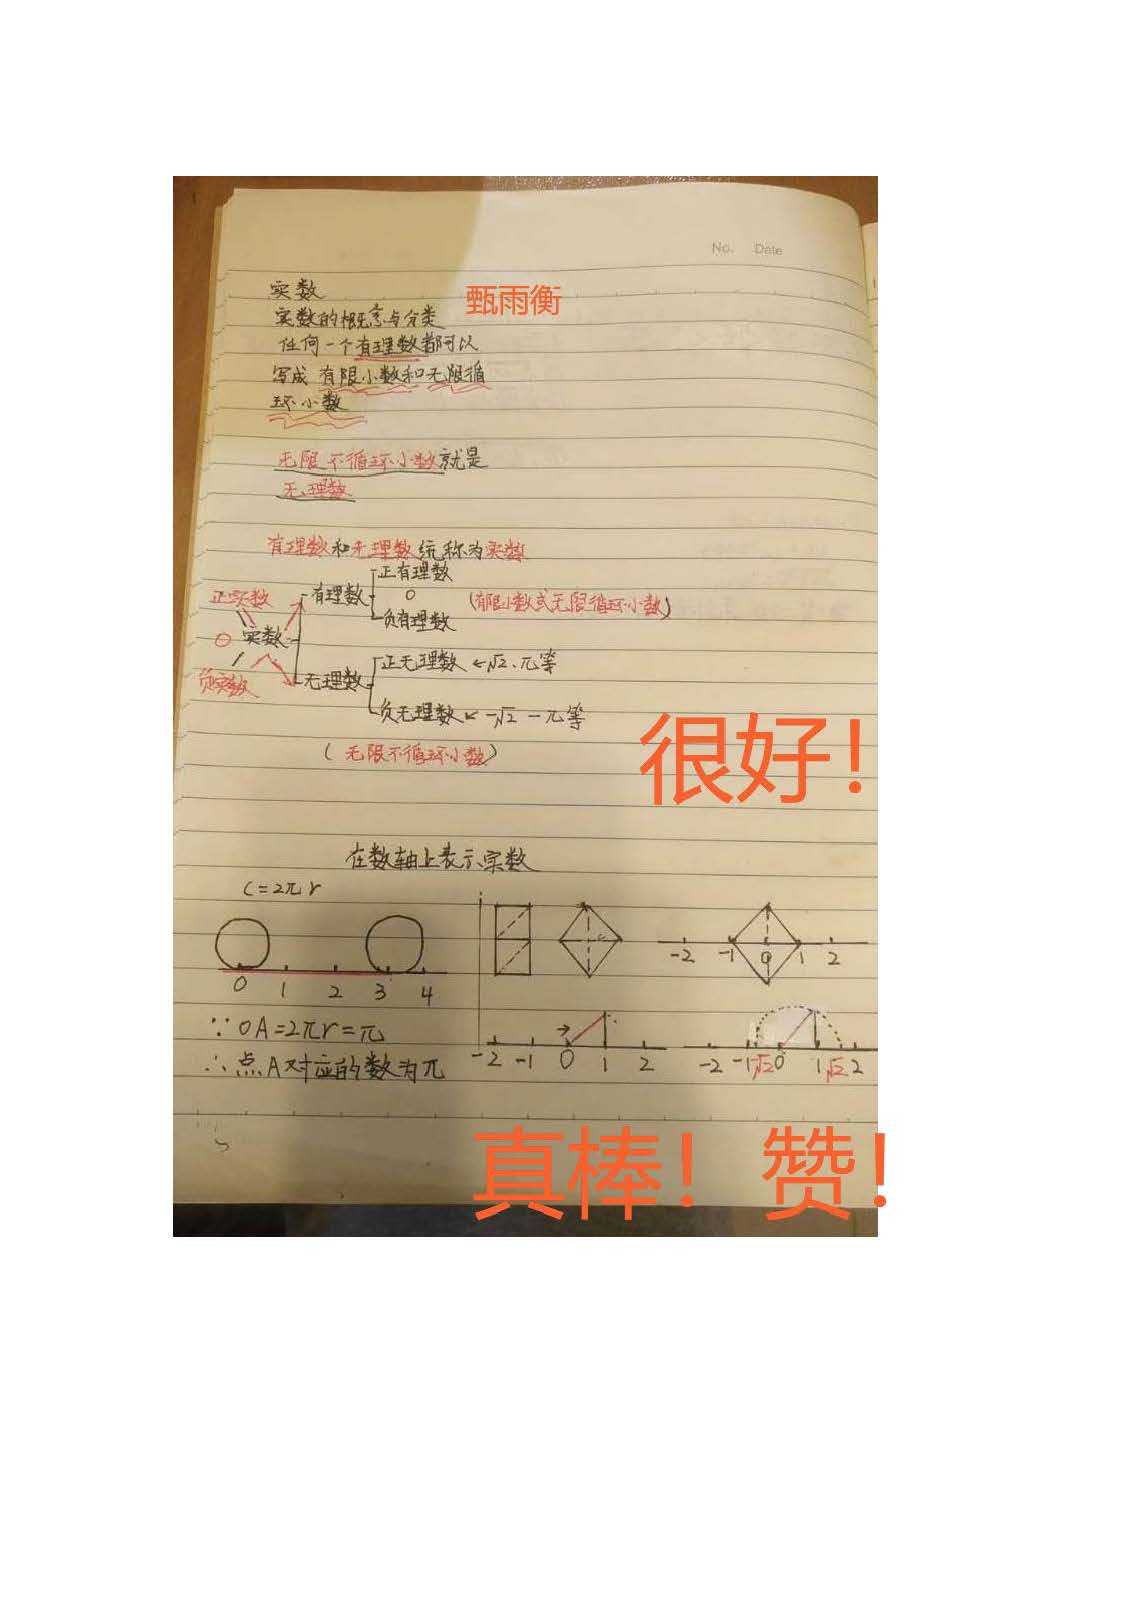 No. Date
实数
甄雨衡
实数的概念与分类
任何一个有理数都可以
写成 有限小数和无限循
环小数
无限不循环小数就是
无理数
有理数和无理数统称为实数
正有理数
正实数 有理数 0 (有限小数或无限循环小数)
0 实数 负有理数
正无理数 ←√2、π等
负实数 无理数
负无理数 ← -√2 -π等
很好！
(无限不循环小数)
在数轴上表示实数
C=2πr
-2 -1 0 1 2
0 1 2 3 4
∵OA=2πr=π
-2 -1 0 1 2
-2 -1 -√2 0 1 √2 2
∴点A对应的数为π
真棒！赞！